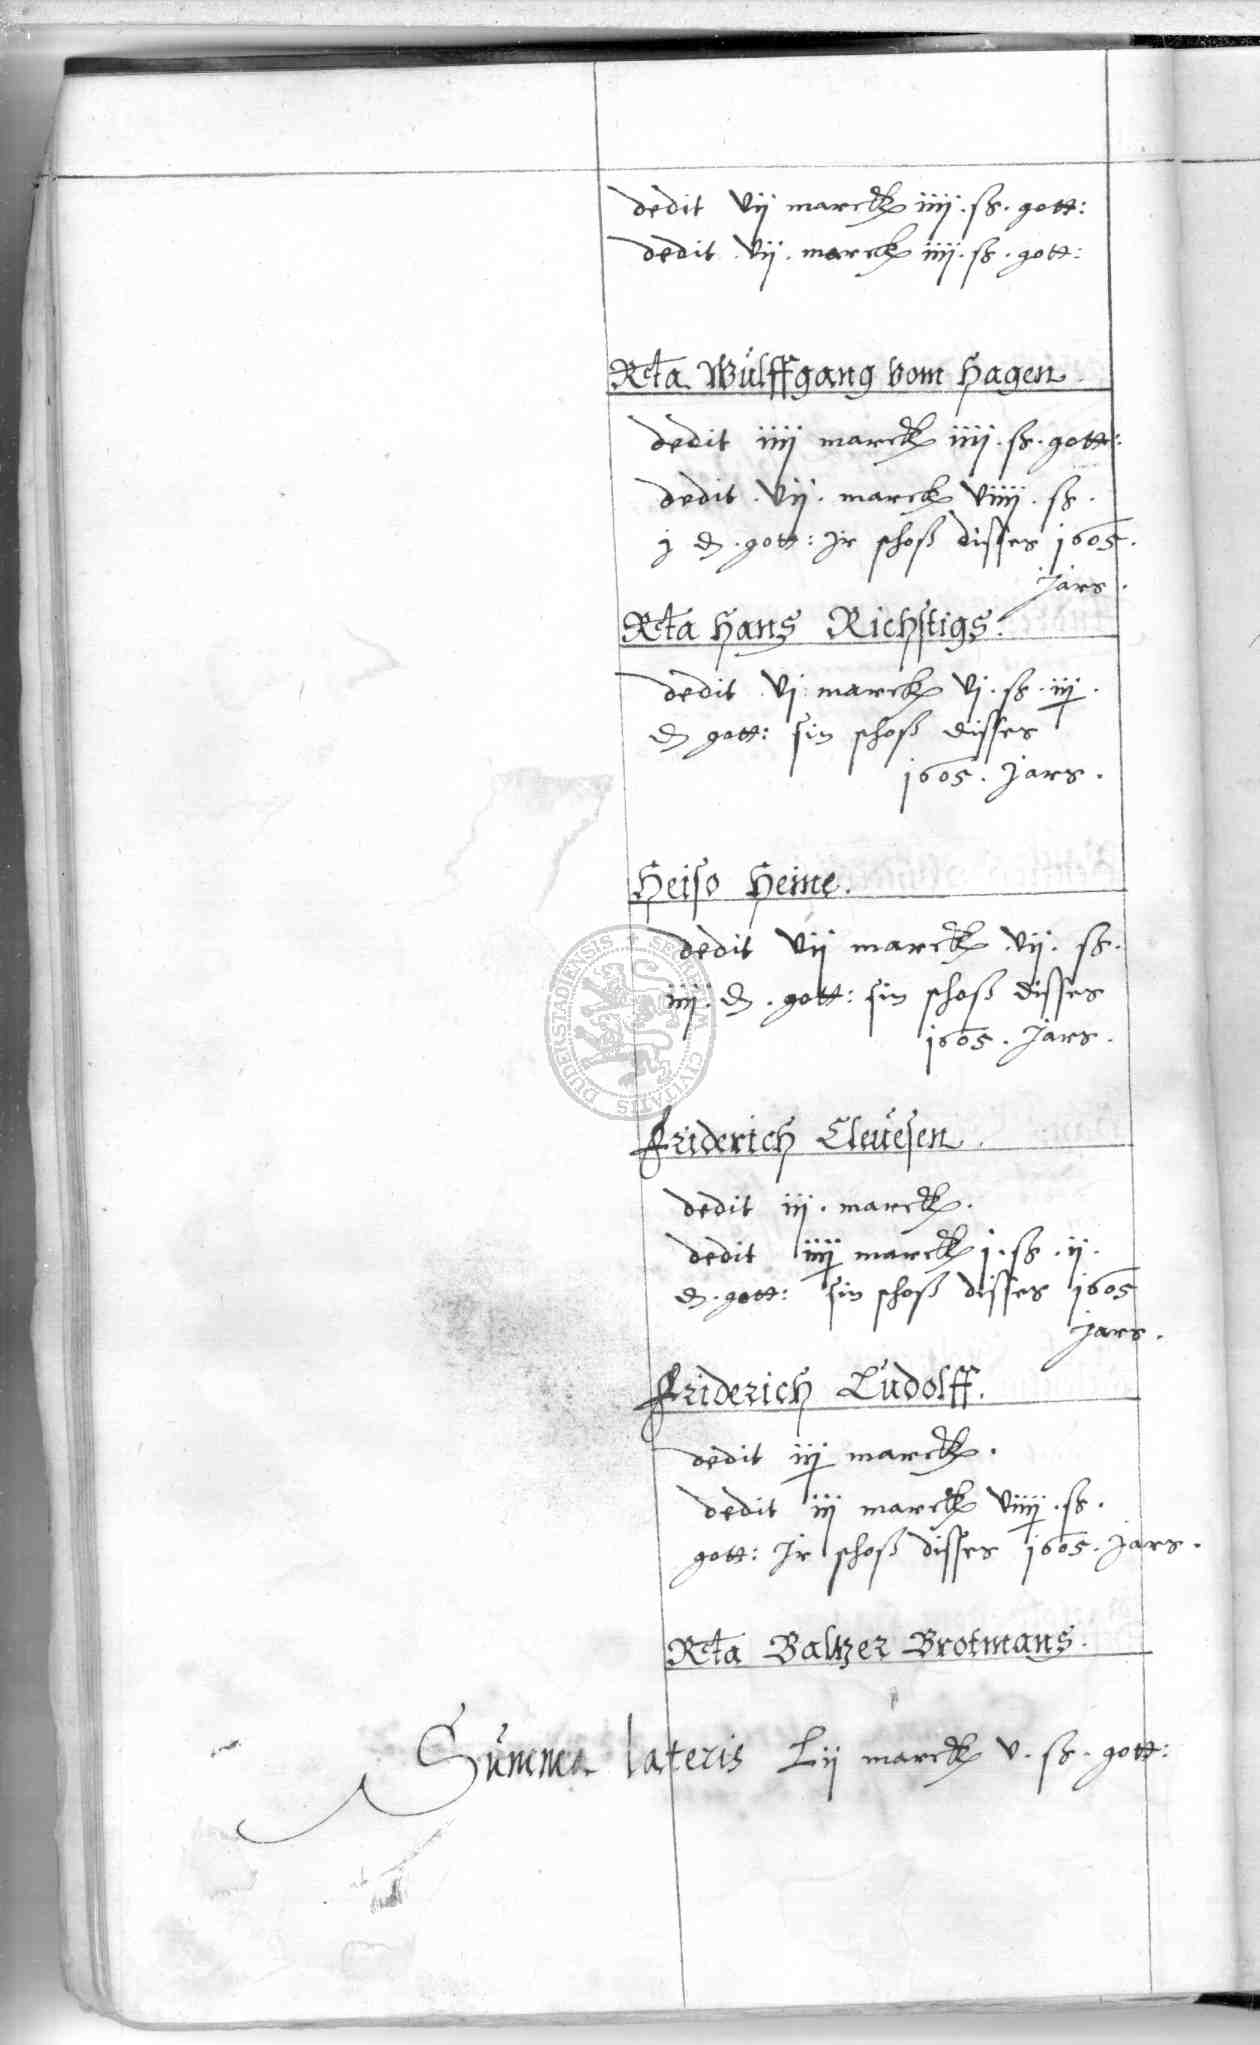 dedit vij marck iiij. ß. gott:
dedit. vij. marck iiij. ß. gott:
Rcta Wülffgang vom Hagen.
dedit iiij marck iiij. ß. gott:
dedit. vij. marck viiij. ß.
j d. gott: Jr schoß disses 1605.
Jars.
Rcta Hans Richstigs.
dedit. vj marck vj. ß. iij.
d gott: sin schoß disses
1605. Jars.
Heiso Heine.
dedit vij marck vij. ß.
iiij. d. gott: sin schoß disses
1605. Jars.
Friderich Cleuesen.
dedit iij. marck.
dedit iiij marck j. ß. ij.
d. gott: sin schoß disses 1605
Jars.
Friderich Ludolff.
dedit iij marck.
dedit iij marck viiij. ß.
gott: Jr schoß disses 1605. Jars.
Rcta Baltzer Brotmans.
Summa lateris Lij marck v. ß. gott:
SECRETUM CIVITATIS DUDERSTADIENSIS